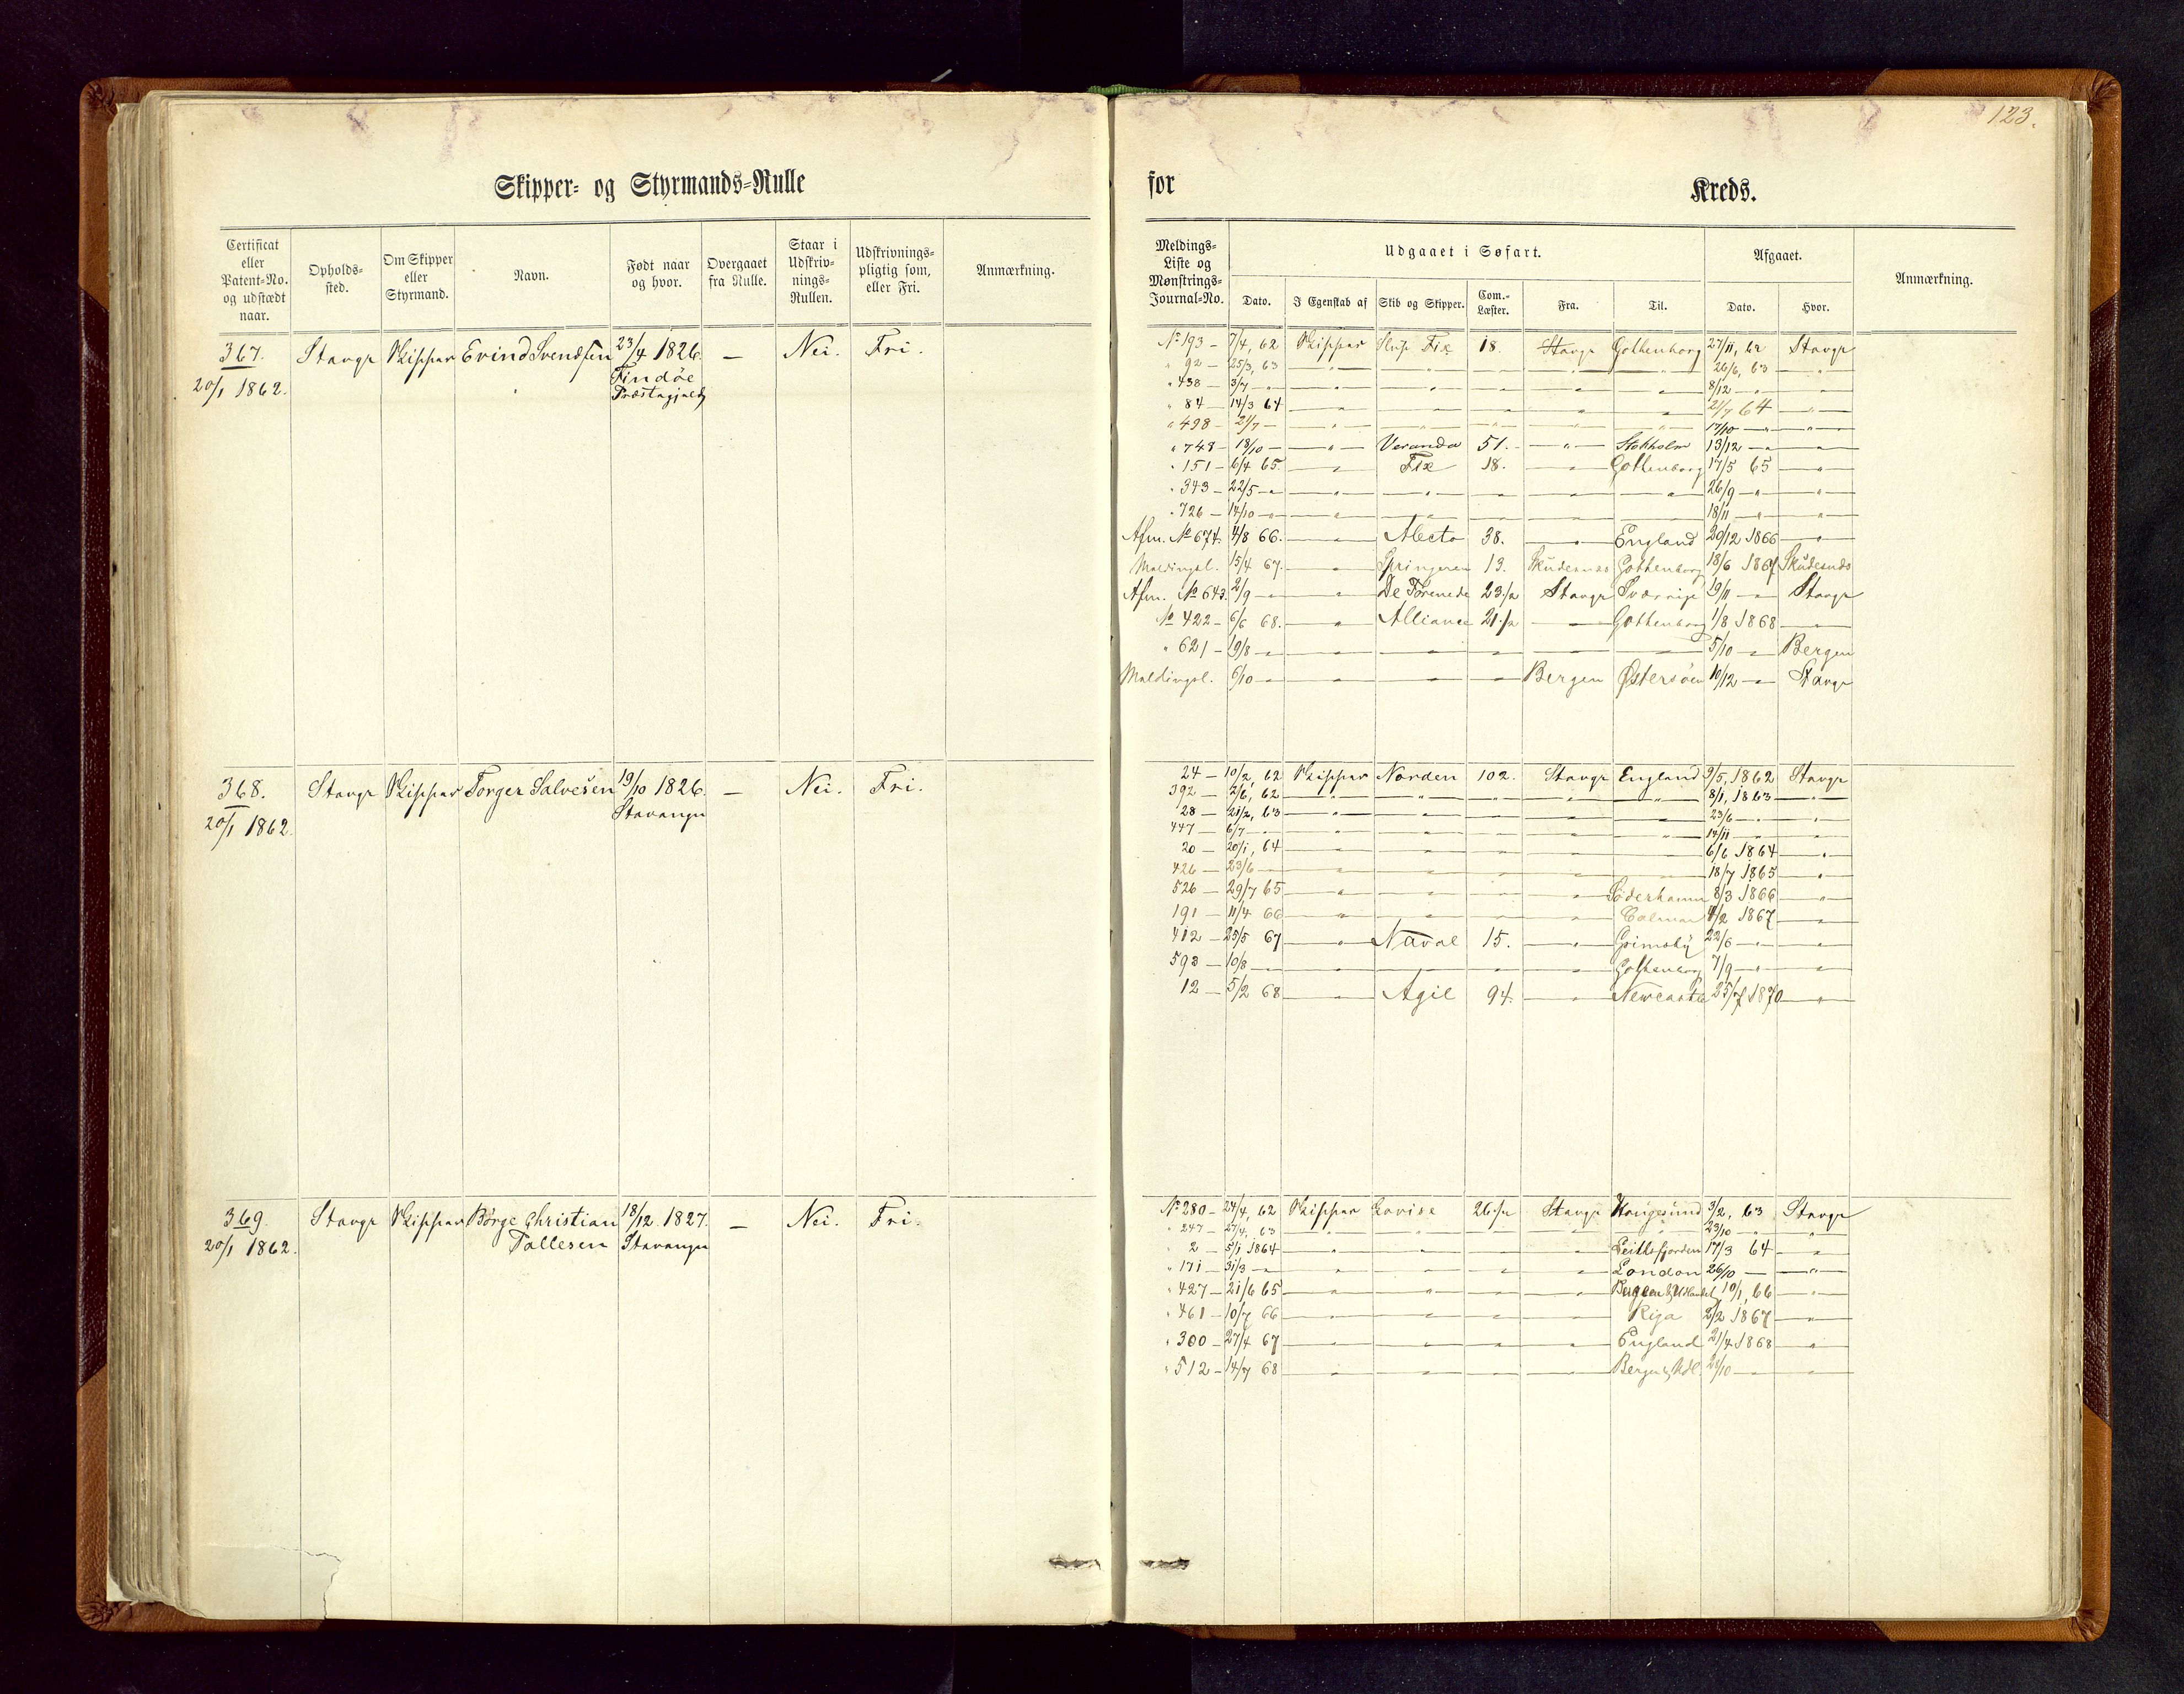 123.
Skipper- og Styrmands-Rulle
for
Kreds.
Certificat eller Patent-No. og udstædt naar.
Opholds-sted.
Om Skipper eller Styrmand.
Navn.
Født naar og hvor.
Overgaaet fra Rulle.
Staar i Udskriv-nings-Rullen.
Udskrivnings-pligtig som, eller Fri.
Anmærkning.
Meldings-Liste og Mønstrings-Journal-No.
Udgaaet i Søfart.
Dato.
I Egenskab af
Skib og Skipper.
Com.-Læster.
Fra.
Til.
Afgaaet.
Dato.
Hvor.
Anmærkning.
367. Stavgr Skipper Evind Svendsen 23/4 1826. — Nei. Fri.
20/1 1862. Findöe
Præstegjeld
No 193 — 7/4, 62 Skipper Slup Fix 18. Stavgr Gothenborg 27/11, 62 Stavgr
" 92 — 25/3, 63 — " — " — " — " — " 26/6, 63 — "
" 438 — 3/7 — " — " — " — " — " — " 8/12 — " — "
" 84 — 14/3 64 — " — " — " — " — " 21/7 64 — "
" 498 — 21/7 — " — " — " — " — " 17/10 — " — "
" 748 — 18/10 — " — Veranda 51. — " — Stokholm 13/12 — " — "
" 151 — 6/4 65. — " Fix 18. — " Gothenborg 17/5 65 — "
" 343 — 22/5 — " — " — " — " — " — " 26/9 — " — "
" 726 — 14/10 — " — " — " — " — " — " 18/11 — " — "
Afm. No 674. 4/8 66. — " — Alecto 38. — " England 20/12 1866 — "
Meldingsl. 15/4 67. — " Springeren 13. Skudesnes Gothenborg 18/6 1867 Skudesnæs
Afm. No 643. 2/9 — " — " De Forenede 23 1/2 Stavgr Sverrige 19/11 — " Stavgr
No 422 — 6/6 68. — " Alliance 21 1/2 — " Gothenborg 1/8 1868 — "
" 621 — 19/8 — " — " — " — " — " — " 5/10 — " Bergen
Meldingsl. 6/10 — " — " — " — " Bergen Østersöen 10/12 — " Stavgr
368. Stavgr Skipper Torger Salvesen 19/10 1826. — Nei. Fri.
20/1 1862. Stavanger
24 — 10/2, 62 Skipper Norden 102. Stavgr England 9/5, 1862 Stavgr
392 — 2/6, 62 — " — " — " — " — " 8/1, 1863 — "
28 — 21/2, 63 — " — " — " — " — " 23/6 — " — "
447 — 6/7 — " — " — " — " — " — " 14/11 — " — "
20 — 20/1, 64 — " — " — " — " — " 6/6 1864 — "
426 — 23/6 — " — " — " — " — " 18/7 1865 — "
526 — 29/7 65 — " — " — " — " Söderhamn 8/3 1866 — "
191 — 11/4 66 — " — " — " — " Calmar 4/2 1867 — "
412 — 25/5 67 — " Naval 15. — " Grimsby 22/6 — " — "
593 — 10/8 — " — " — " — " — " Gothenborg 7/9 — " — "
12 — 5/2 68 — " Agil 94. — " Newcastle 25/7 1870 — "
369. Stavgr Skipper Börge Christian 18/12 1827. — Nei. Fri.
20/1 1862. Tallesen Stavanger
No 280 — 24/4, 62 Skipper Lovise 26 1/2 Stavgr Haugesund 3/2, 63 Stavgr
" 247 — 27/4, 63 — " — " — " — " — " 23/10 — " — "
" 2 — 5/1 1864 — " — " — " — " Leithfjorden 17/3 64 — "
" 171 — 31/3 — " — " — " — " — " London 26/10 — " — "
" 427 — 21/6 65 — " — " — " — " Bergen & Udlandet 10/1, 66 — "
" 461 — 10/7 66 — " — " — " — " Riga 2/2 1867 — "
" 300 — 27/4 67 — " — " — " — " England 21/4 1868 — "
" 512 — 14/7 68 — " — " — " — " Bergen & Udl. 23/10 — " — "